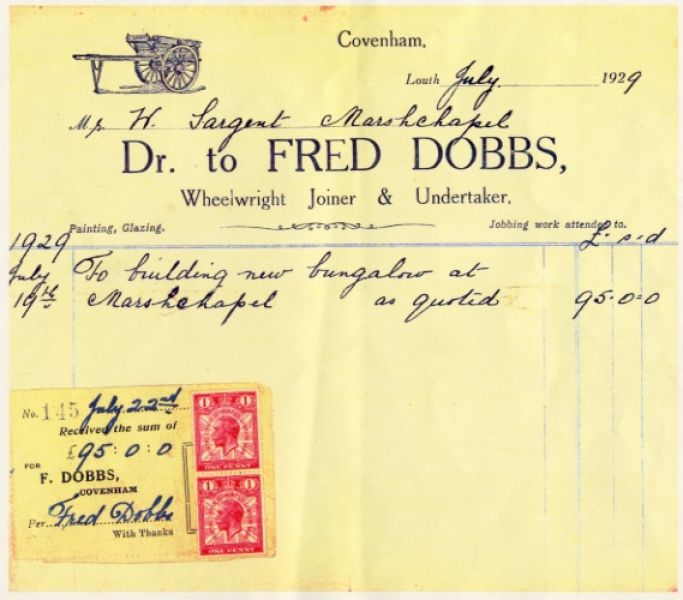 Covenham,
Louth July 1929
Mr W. Sargent Marshchapel
Dr. to FRED DOBBS,
Wheelwright Joiner & Undertaker.
Painting, Glazing. Jobbing work attended to.
1929 £ - s - d
July To building new bungalow at
19th Marshchapel as quoted 95-0-0
No. 145 July 22nd
Received the sum of
£95:0:0
FOR
F. DOBBS,
COVENHAM
Per Fred Dobbs
With Thanks
1 1
ONE PENNY
1 1
ONE PENNY